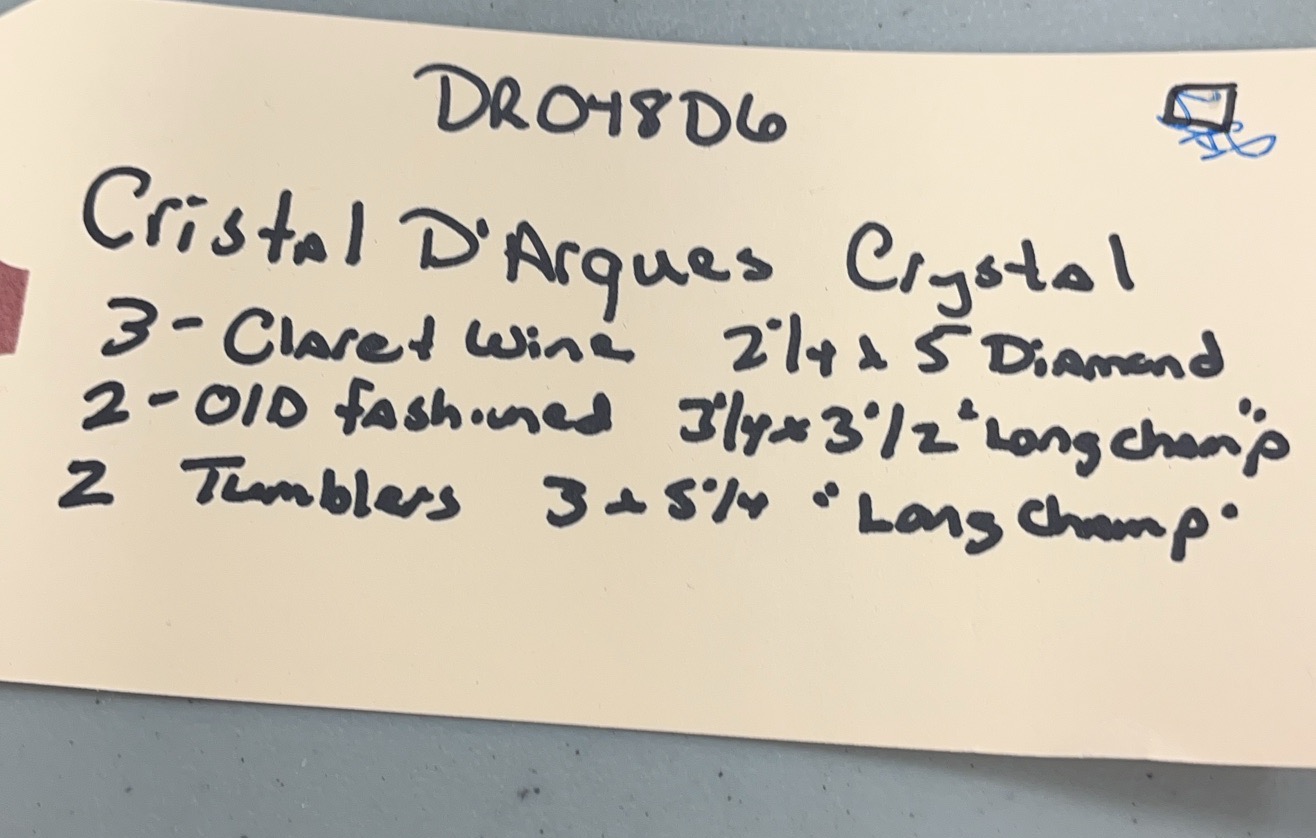 DR048D6
Cristal D'Arques Crystal
3 - Claret Wine 2 1/4 x 5 Diamond
2 - OlD fashioned 3 1/4 x 3 1/2 "Longchamp"
2 Tumblers 3 x 5 1/4 "Longchamp"